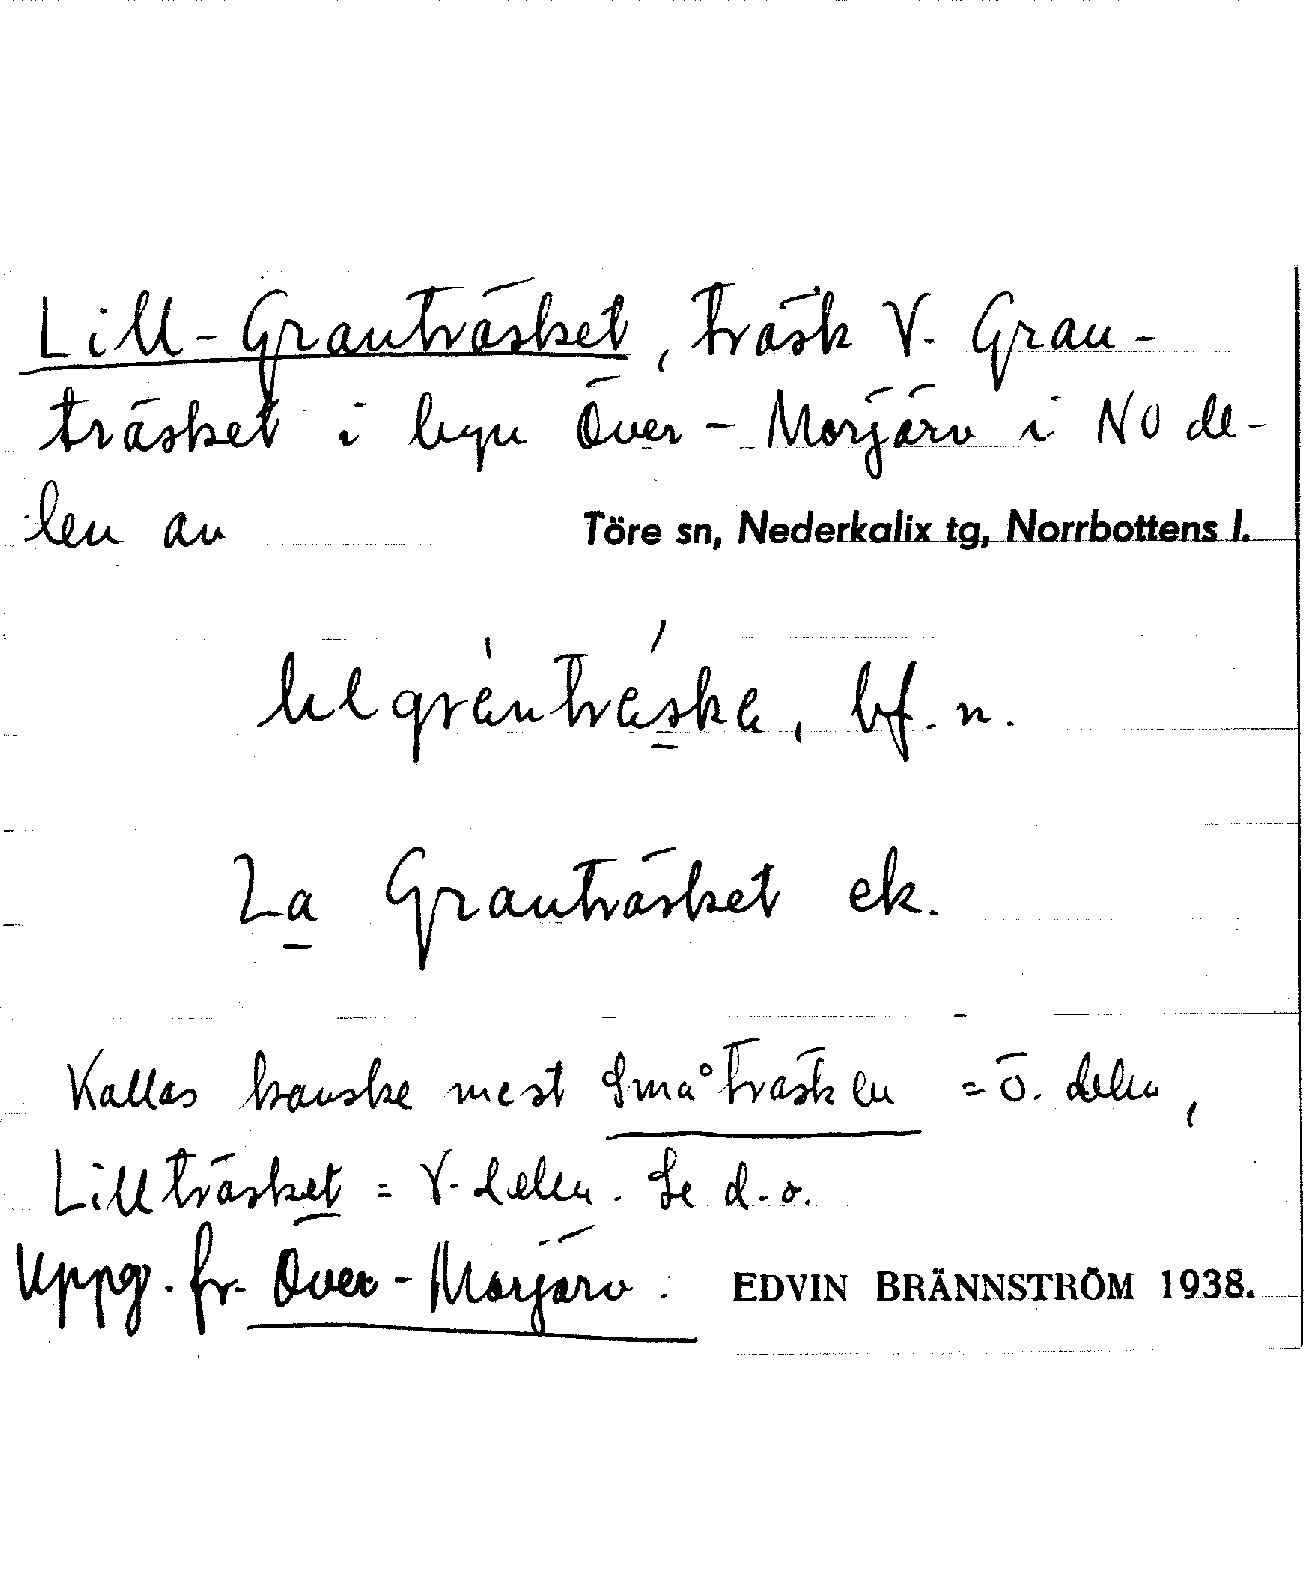 Lill-Granträsket, träsk V. Gran-
träsket i byn Över-Morjärv i NO de-
len av Töre sn, Nederkalix tg, Norrbottens l.
bf. n.
La Granträsket ek.
Kallas kanske mest Småträsken = ö. delen,
Lillträsket = V. delen. Se d. o.
Uppg. fr. Över-Morjärv. EDVIN BRÄNNSTRÖM 1938.